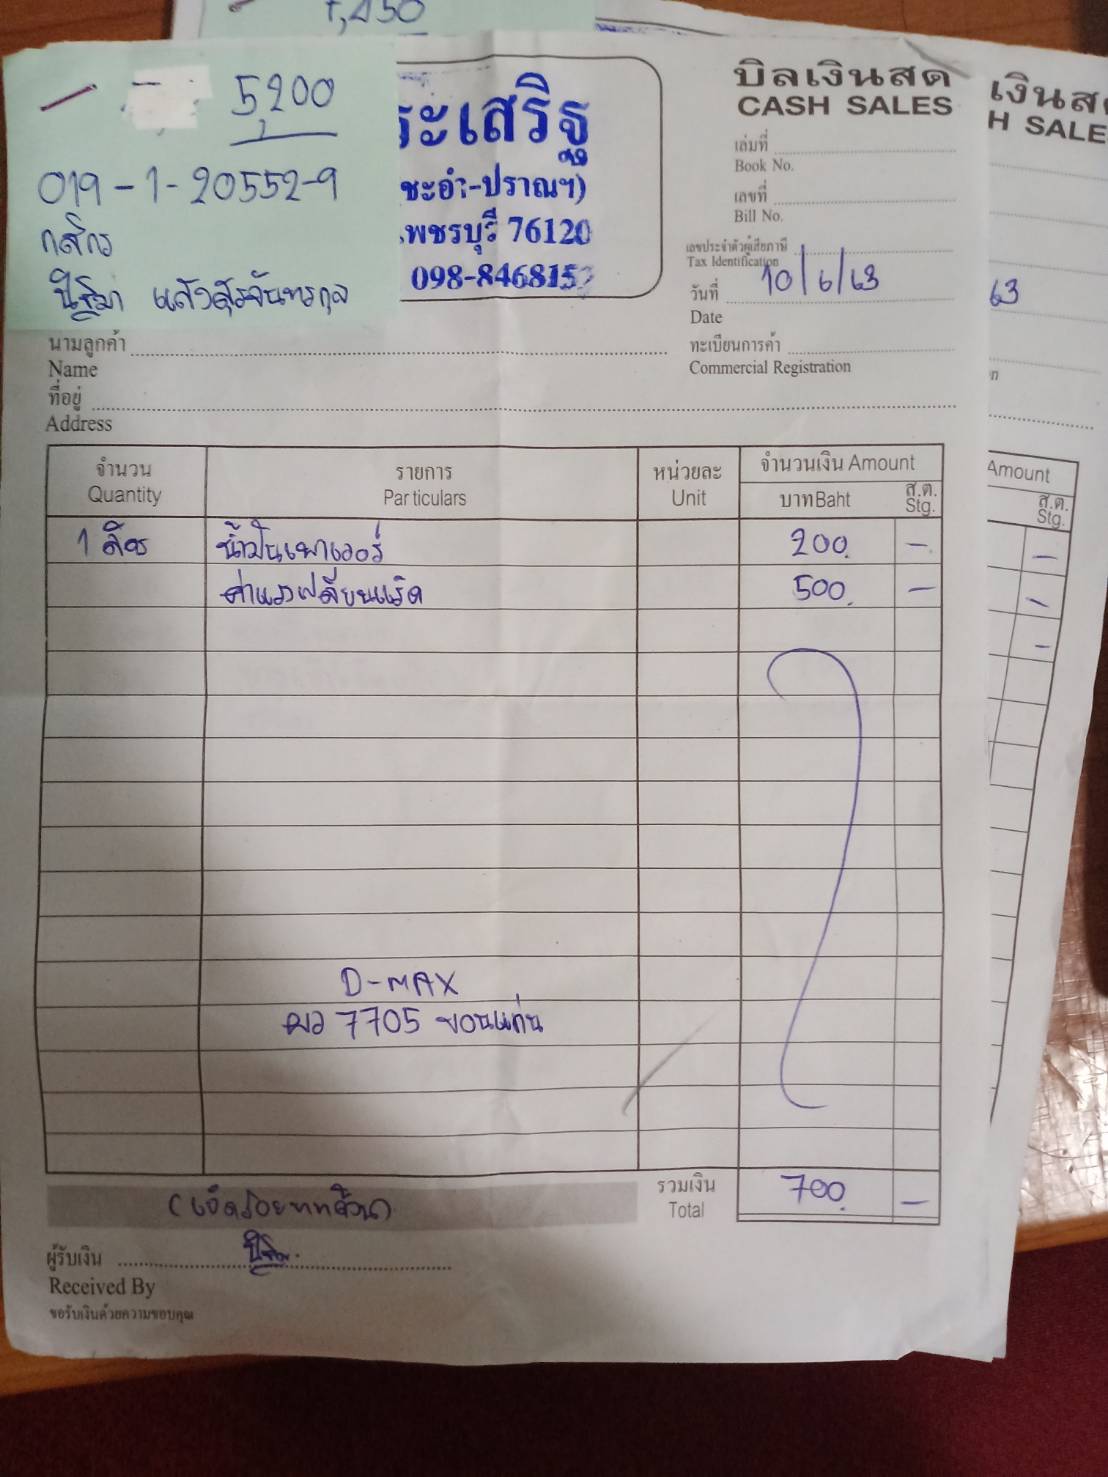 7,450
5,200
019-1-20552-9
กสิกร
ระเสริฐ
ชะอำ-ปราณฯ)
พชรบุรี 76120
098-846815
บิลเงินสด
CASH SALES
เล่มที่
Book No.
เลขที่
Bill No.
เลขประจำตัวผู้เสียภาษี
Tax Identification
วันที่ 10/6/63
Date
ทะเบียนการค้า
Commercial Registration
นามลูกค้า
Name
ที่อยู่
Address
จำนวน รายการ หน่วยละ จำนวนเงิน Amount
Quantity Particulars Unit บาท Baht ส.ต. Stg.
1 ลิตร น้ำมันเพาเวอร์ 200. -
ค่าแรงเปลี่ยนแร็ค 500. -
D-MAX
7705 ขอนแก่น
(เจ็ดร้อยบาทถ้วน) รวมเงิน 700. -
Total
ผู้รับเงิน
Received By
ขอรับเงินด้วยความขอบคุณ
เงินส
H SALE
63
n
Amount
ส.ต.
Stg.
-
-
-